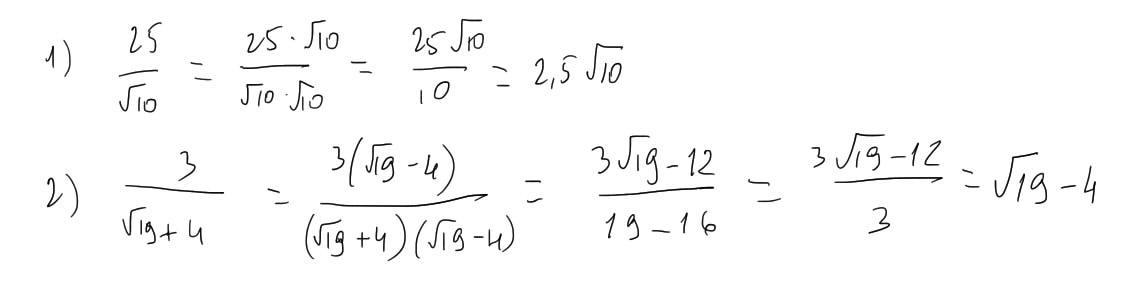 1) 25/√10 = (25·√10)/(√10·√10) = 25√10/10 = 2,5√10
2) 3/(√19+4) = 3(√19-4)/((√19+4)(√19-4)) = (3√19-12)/(19-16) = (3√19-12)/3 = √19-4